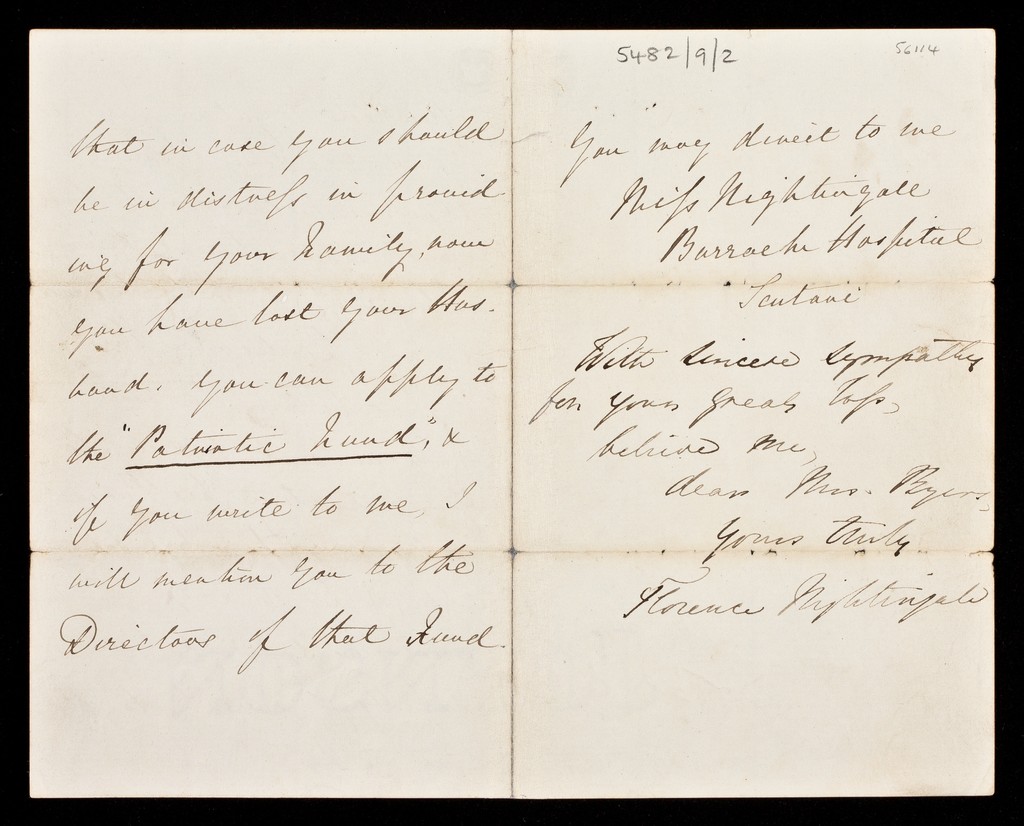 that in case you should
be in distress in provid-
ing for your Family, now
you have lost your Hus-
band. you can apply to
the "Patriotic Fund", &
if you write to me, I
will mention you to the
Directors of that Fund.
5482/9/2
56114
You may direct to me
Miss Nightingale
Barrack Hospital
Scutari
With sincere sympathy
for your great loss,
believe me,
dear Mrs. Byers,
yours truly
Florence Nightingale